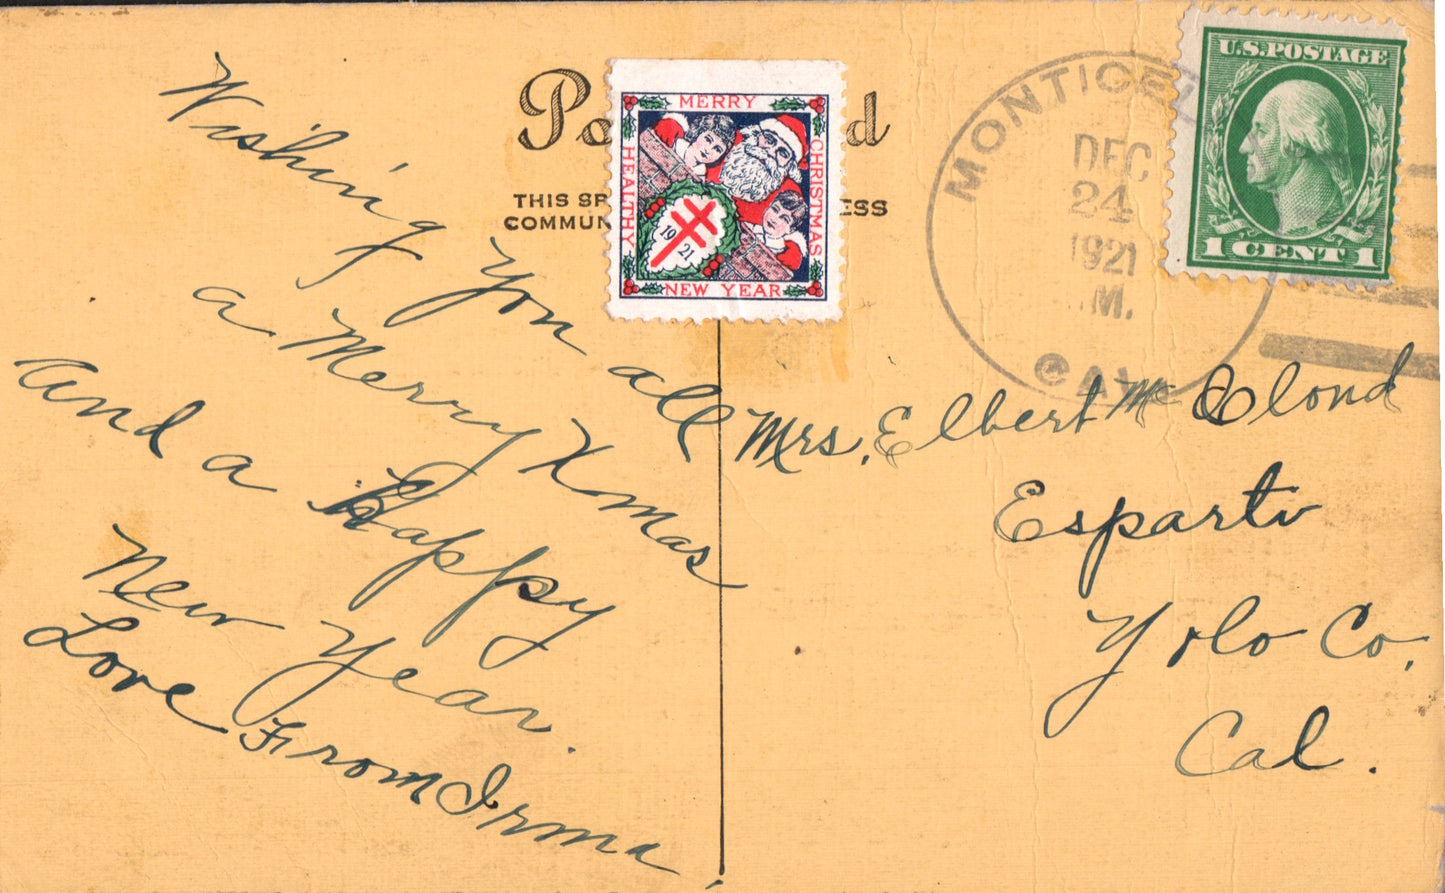 Wishing you all
a Merry Xmas
and a Happy
New Year.
Love From Irma
Po d
THIS SP ESS
COMMUN
MERRY
CHRISTMAS
HEALTHY
NEW YEAR
1921
MONTICEL
DEC
24
1921
M.
CAL
U.S. POSTAGE
1 CENT 1
Mrs. Elbert Mc Clond
Esparto
Yolo Co.
Cal.